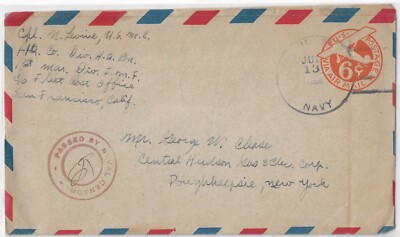 Cpl. N. Levine, U.S.M.C.
Hq. Co. Div. H.Q. Bn.
1st Mar. Div. F.M.F.
c/o Fleet Post Office
San Francisco, Calif.
JUN
13
NAVY
POSTAGE
VIA AIR MAIL
6¢
PASSED BY NAVAL CENSOR
Mr. George W. Chase
Central Hudson Gas & Elec. Corp.
Poughkeepsie, New York